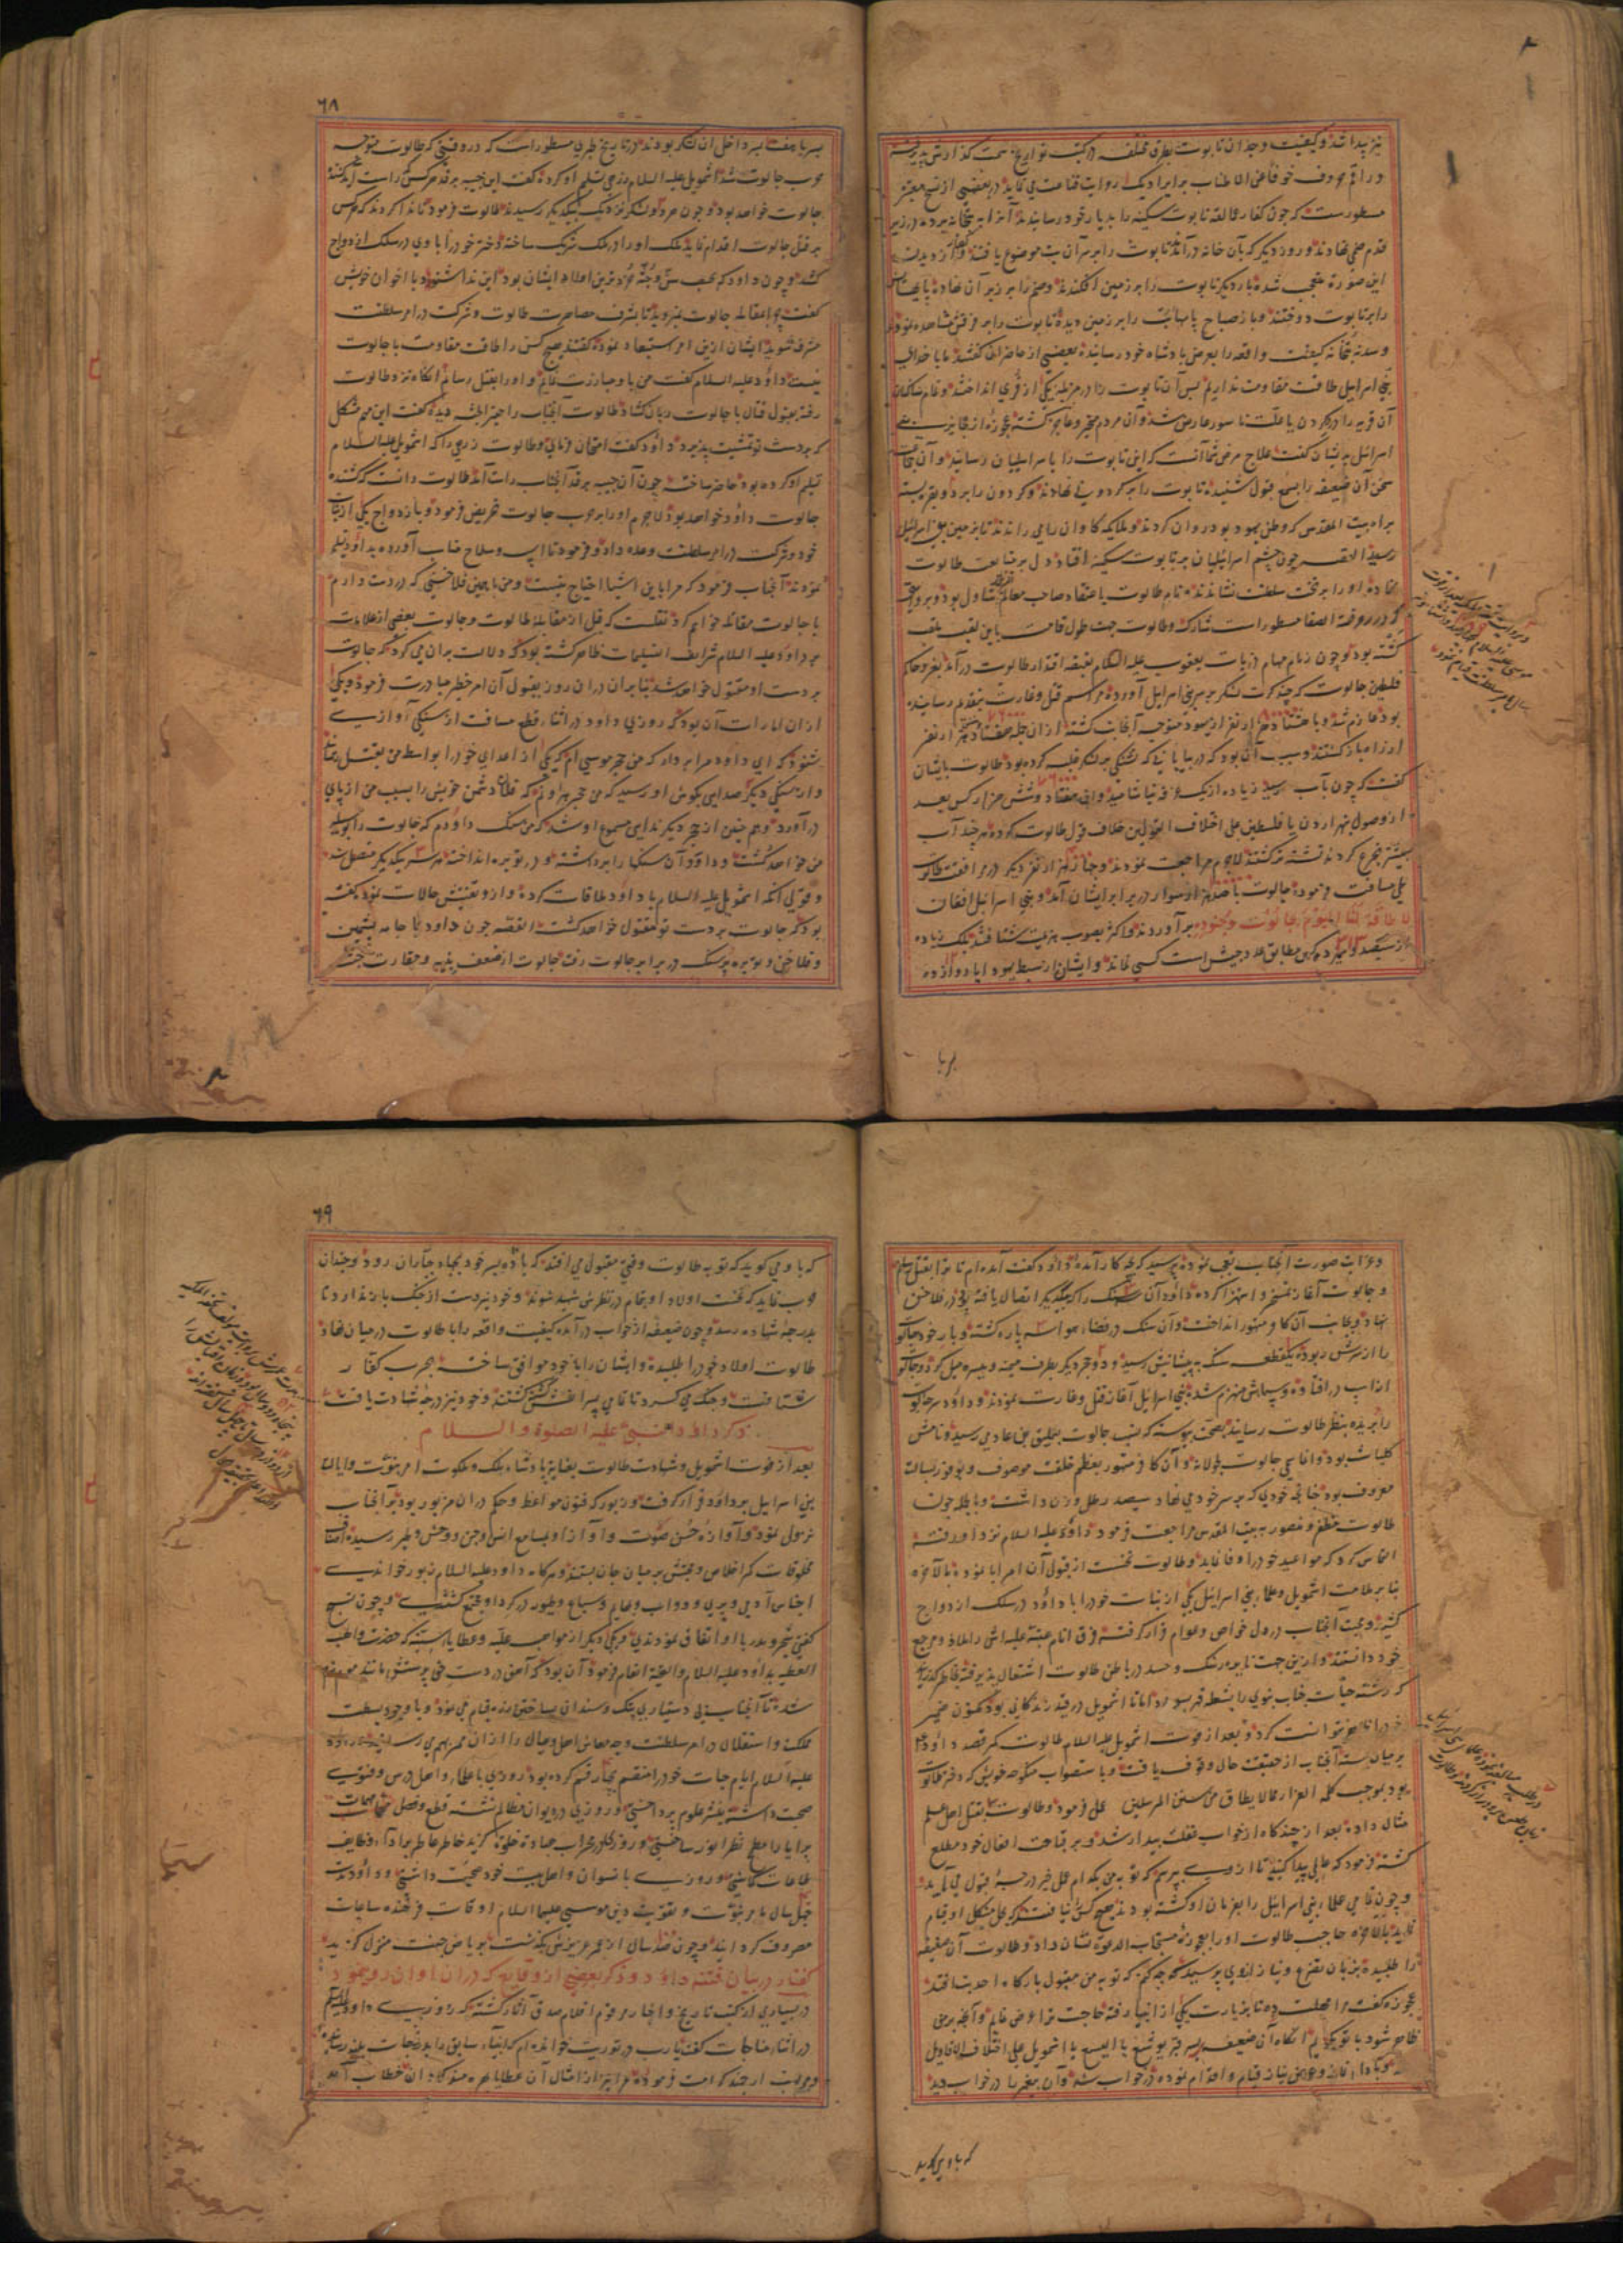 نیز پیدا شد و کیفیت وجدان تابوت بطرق مختلفه در کتب تواریخ سمت گذارش پذیرفته
و راقم حروف خوفا عن الاطناب بر ایراد یک روایت قناعت می نماید در بعضی از نسخ معتبر
مسطورست که چون کفار عمالقه تابوت سکینه را بدیار خود رسانیدند آنرا به بتخانه برده در زیر
قدم صنمی نهادند و روز دیگر که بآن خانه در آمدند تابوت را بر سر آن بت موضوع یافتند و از دیدن
این صورت متعجب شده بار دیگر تابوت را بر زمین افکندند و صنم را بر زبر آن نهاده پایهاش
را بر تابوت دوختند و باز صباح پایهای بت را بر زمین دیده تابوت را بر فرقش مشاهده نمودند
و سدنه بتخانه کیفیت واقعه را بعرض پادشاه خود رسانیده بعضی از حاضران گفتند ما با خدای
بنی اسرائیل طاقت مقاومت نداریم پس آن تابوت را در مزبله یکی از قری انداختند و تمام ساکنان
آن قریه را درد گردن یا علت ناسور عارض شد و آن مردم متحیر و عاجز گشته عجوزه از عجایز بنی
اسرائیل بدیشان گفت علاج مرض شما آنست که این تابوت را باسرائیلیان رسانید و آن جماعت
سخن آن ضعیفه را بسمع قبول شنیده تابوت را بر گردونی نهادند و گردون را بر دو بقر بسته
براه بیت المقدس که وطن یهود بود روان کردند و ملایکه گاوان را می راندند تا بزمین بنی اسرائیل
رسید القصه چون چشم اسرائیلیان بر تابوت سکینه افتاد دل بر متابعت طالوت
نهاده او را بر تخت سلطنت نشاندند و نام طالوت باعتقاد صاحب معالم التنزیل شاول بود و بروایتی
که در روضة الصفا مسطور است شارک و طالوت جهت طول قامت باین لقب ملقب
گشته بود و چون زمام مهام ذریات یعقوب علیه السلام بقبضه اقتدار طالوت در آمد بغزو حاکم
فلسطین جالوت که چند کرت لشکر بر سر بنی اسرائیل آورده مراسم قتل و غارت بتقدیم رسانیده
بود عازم شد و با هشتاد هزار نفر از یهود متوجه آنجانب گشته از آن جمله هفتاد و شش هزار نفر
از راه باز گشتند و سبب آن بود که در بیابانی که تشنگی بر لشکر غلبه کرده بود طالوت بایشان
گفت که چون بآب رسید زیاده از یک غرفه نیاشامید و این هفتاد و شش هزار کس بعد
از وصول بنهر اردن یا فلسطین علی اختلاف القولین خلاف قول طالوت کرده هر چند آب
بیشتر تجرع کردند تشنه تر گشتند لاجرم مراجعت نمودند و چهار هزار نفر دیگر در مرافقت طالوت
طی مسافت فرموده جالوت با صد هزار سوار در برابر ایشان آمد و بنی اسرائیل افغان
لا طاقة لنا الیوم بجالوت و جنوده بر آوردند و اکثر بصوب هزیمت شتافتند بلکه زیاده
از سیصد و سیزده کس مطابق عدد جیش است کسی نماند و ایشان از سبط یهودا یا دوازده
پسر یا هفت پسر داخل آن لشکر بودند در تاریخ طبری مسطور است که در وقتی که طالوت متوجه
حرب جالوت شد اشمویل علیه السلام زرهی تسلیم او کرده گفت این جیبه بر قد هر کس راست آید کشنده
جالوت خواهد بود و چون هر دو لشکر نزدیک بیکدیگر رسیدند طالوت فرمود تا ندا کردند که هر کس
بر قتل جالوت اقدام نماید ملک او را در ملک شریک ساخته دختر خود را با وی در سلک ازدواج
کشد و چون داود که بحسب سن و جثه خردترین اولاد ایشان بود این ندا شنود با اخوان خویش
گفت چرا بمقاتله جالوت نمیروید تا بشرف مصاهرت طالوت و شرکت در امر سلطنت
مشرف شوید ایشان ازین امر استبعاد نموده گفتند هیچ کس را طاقت مقاومت با جالوت
نیست داود علیه السلام گفت من با او مبارزت نمایم و او را بقتل رسانم آنگاه نزد طالوت
رفته بقبول قتال با جالوت زبان گشاد طالوت آنجناب را حقیر الجثه دیده گفت این مهم مشکل
که بر دست تو تمشیت پذیرد داود گفت امتحان فرمای و طالوت زرهی را که اشمویل علیه السلام
تسلیم او کرده بود حاضر ساخته چون آن جیبه بر قد آنجناب راست آمد طالوت دانست که کشنده
جالوت داود خواهد بود لاجرم او را بحرب جالوت تحریض فرمود و بازدواج یکی از بنات
خود و شرکت در امر سلطنت وعده داد و فرمود تا اسپ و سلاح مناسب آورده بداود تسلیم
نمودند آنجناب فرمود که مرا باین اشیا احتیاج نیست و من با همین فلاخنی که در دست دارم
با جالوت مقاتله خواهم کرد نقلست که قبل از مقابله طالوت و جالوت بعضی از علامات
بر داود علیه السلام شرایف التسلیمات ظاهر گشته بود که دلالت بر آن می کرد که جالوت
بر دست او مقتول خواهد شد بنابر آن در آن روز بقبول آن امر خطیر مبادرت فرمود و یکی
از آن امارات آن بود که روزی داود در اثناء قطع مسافت از سنگی آوازی
شنود که ای داود مرا بردار که من حجر موسی ام که یکی از اعدای خود را بواسطه من بقتل رسانید
و از سنگی دیگر صدایی بگوش او رسید که من حجر هرونم که فلان دشمن خویش را بسبب من از پای
در آورد و هم چنین از حجر دیگر ندایی مسموع او شد که من سنگ داودم که جالوت را بوسیله
من خواهد کشت و داود آن سنگها را برداشته و در توبره انداخته هر سه بیکدیگر متصل شد
و قولی آنکه اشمویل علیه السلام با داود ملاقات کرده و از و تفتیش حالات نمود گفته
بود که جالوت بر دست تو مقتول خواهد گشت القصه چون داود با جامه پشمین
و فلاخن و توبره پرسنگ در برابر جالوت رفت جالوت از ضعف بنیه و حقارت جثه
بر یا
و غرابت صورت آنجناب تعجب نموده پرسید که بچه کار آمده داود گفت آمده ام تا ترا بقتل رسانم
و جالوت آغاز تمسخر و استهزا کرده داود آن سه سنگ را که بیکدیگر اتصال یافته بود در فلاخن
نهاد و بجانب آن کافر مقهور انداخت و آن سنگ در فضاء هوا سه پاره گشته و باد خود جالوت
را از سرش ربود و یکقطعه سنگ به پیشانیش رسید و دو حجر دیگر بطرف میمنه و میسره میل کرد و جالوت
از اسپ در افتاده و سپاهش منهزم شده بنی اسرائیل آغاز قتل و غارت نمودند و داود سر جالوت
را بریده بنظر طالوت رسانید بصحت پیوسته که نسب جالوت بعملیق بن عاد می رسید و نامش
کلیاث بود و اقامی جالوت بجولانه و آن کافر مقهور بعظم خلقت موصوف و بوفور بسالت
معروف بود چنانچه خودی که بر سر خود می نهاد سیصد رطل وزن داشت و بالجمله چون
طالوت مظفر و منصور به بیت المقدس مراجعت فرمود داود علیه السلام نزد او رفته
التماس کرد که مواعید خود را وفا نماید و طالوت نخست از قبول آن امر ابا نموده بالاخره
بنابر ملامت اشمویل و علماء بنی اسرائیل یکی از بنات خود را با داود در سلک ازدواج
کشید و محبت آنجناب در دل خواص و عوام قرار گرفته فرق انام عتبه علیه اش را ملاذ و مرجع
خود دانستند و ازین جهت نایره رشک و حسد در باطن طالوت اشتعال پذیرفته بخاطر گذرانید
که رشته حیات جناب نبوی را بشط قهر ببرد اما تا اشمویل در قید زندگانی بود مکنون ضمیر
خود را ظاهر نتوانست کرد و بعد از فوت اشمویل علیه السلام طالوت کمر قصد داود
بر میان بست آنجناب از حقیقت حال وقوف یافت و باستصواب منکوحه خویش که دختر طالوت
بود بموجب کلمه الفرار مما لا یطاق من سنن المرسلین عمل فرمود و طالوت بقتل اهل علم
مثال داده بعد از چند گاه از خواب غفلت بیدار شد و بر قباحت افعال خود مطلع
گشته فرمود که عالمی پیدا کنید تا از وی بپرسم که توبه من بکدام عمل خیر درجه قبول می یابد
و چون تمامی علماء بنی اسرائیل را بفرمان او کشته بودند هیچ کس را نیافتند که بحل مشکل او قیام
نماید بالاخره حاجب طالوت او را بعجوزه مستجاب الدعوة نشان داد و طالوت آن ضعیفه
را طلبیده بزبان تضرع و نیاز از وی پرسید که چه کنم که توبه من مقبول بارگاه احدیت افتد
عجوزه گفت مرا مهلت ده تا بزیارت یکی از انبیا رفته حاجت تو را عرض نمایم و آنچه بر من
ظاهر شود با تو بگویم آنگاه آن ضعیفه بر سر قبر یوشع یا الیسع یا اشمویل علی اختلاف الاقاویل
و بآداب نماز و عرض نیاز قیام و اقدام نموده در خواب شد و آن پیغمبر را در خواب دید
که با وی گوید
که با وی گوید که توبه طالوت وقتی مقبول می افتد که با ده پسر خود بجهاد جباران رود و چندان
حرب نماید که نخست اولاد او تمام در نظرش شهید شوند و خود نیز دست از جنگ باز ندارد تا
بدرجه شهادت رسد و چون ضعیفه از خواب در آمده کیفیت واقعه را با طالوت در میان نهاد
طالوت اولاد خود را طلبیده و ایشان را با خود موافق ساخته بحرب کفار
شتافت و جنگ می کرد تا تمامی پسرانش کشته گشتند و خود نیز درجه شهادت یافت
ذکر داود نبی علیه الصلوة والسلام
بعد از فوت اشمویل و شهادت طالوت بعنایت پادشاه ملک و ملکوت امر نبوت و ایالت
بنی اسرائیل بر داود قرار گرفت و زبور که فنون مواعظ و حکم در آن مزبور بود بر آنجناب
نزول نمود و آوازه حسن صوت و آواز او بسامع انس و جن و وحش و طیر رسیده اصناف
مخلوقات کمر اخلاص و محبتش بر میان جان بستند و هرگاه داود علیه السلام زبور خواندی
اجناس آدمی و پری و دواب و بهایم و سباع و طیور در گرد او مجتمع گشتندی و چون تسبیح
گفتی شجر و مدر با او اتفاق نمودندی و یکی دیگر از مواهب علیه و عطایا سنیه که حضرت واهب
العطیه بداود علیه السلام والتحیه انعام فرمود آن بود که آهن در دست حق پرستش مانند موم نرم
شد تا آنجناب بی دستیاری پتک و سندان بساختن زره قیام می نمود و با وجود بسطت
مملکت و استقلال در امر سلطنت وجه معاش اهل و عیال را از آن ممر بهم می رسانید و داود
علیه السلام ایام حیات خود را منقسم بچهار قسم کرده بود روزی با علما و اهل درس و فتوی
صحبت داشته بنشر علوم پرداختی و روزی در دیوان مظالم نشسته قطع و فصل مهمات
برایا را مطمح نظر انور ساختی و روزی در محراب عبادت خلوت گزیده خاطر عاطر بر اداء وظایف
طاعات گماشتی و روزی با نسوان و اهل بیت خود صحبت داشتی و داود مدت
چهل سال بامر نبوت و تقویت دین موسی علیهما السلام اوقات فرخنده ساعات
مصروف گردانید و چون صد سال از عمر عزیزش بگذشت بریاض جنت منزل گزید
گفتار در بیان فتنه داود و ذکر بعضی از وقایع که در آن اوان روی نمود
در بسیاری از کتب تاریخ و اخبار مرقوم اقلام صدق آثار گشته که روزی داود علیه السلام
در اثناء مناجات گفت یارب در توریت خوانده ام که انبیاء سابق را بدرجات بلند رسانیده
و مواهب ارجمند کرامت فرموده مرا نیز از امثال آن عطایا بهره مند گردان خطاب آمد
۶۸
۶۹